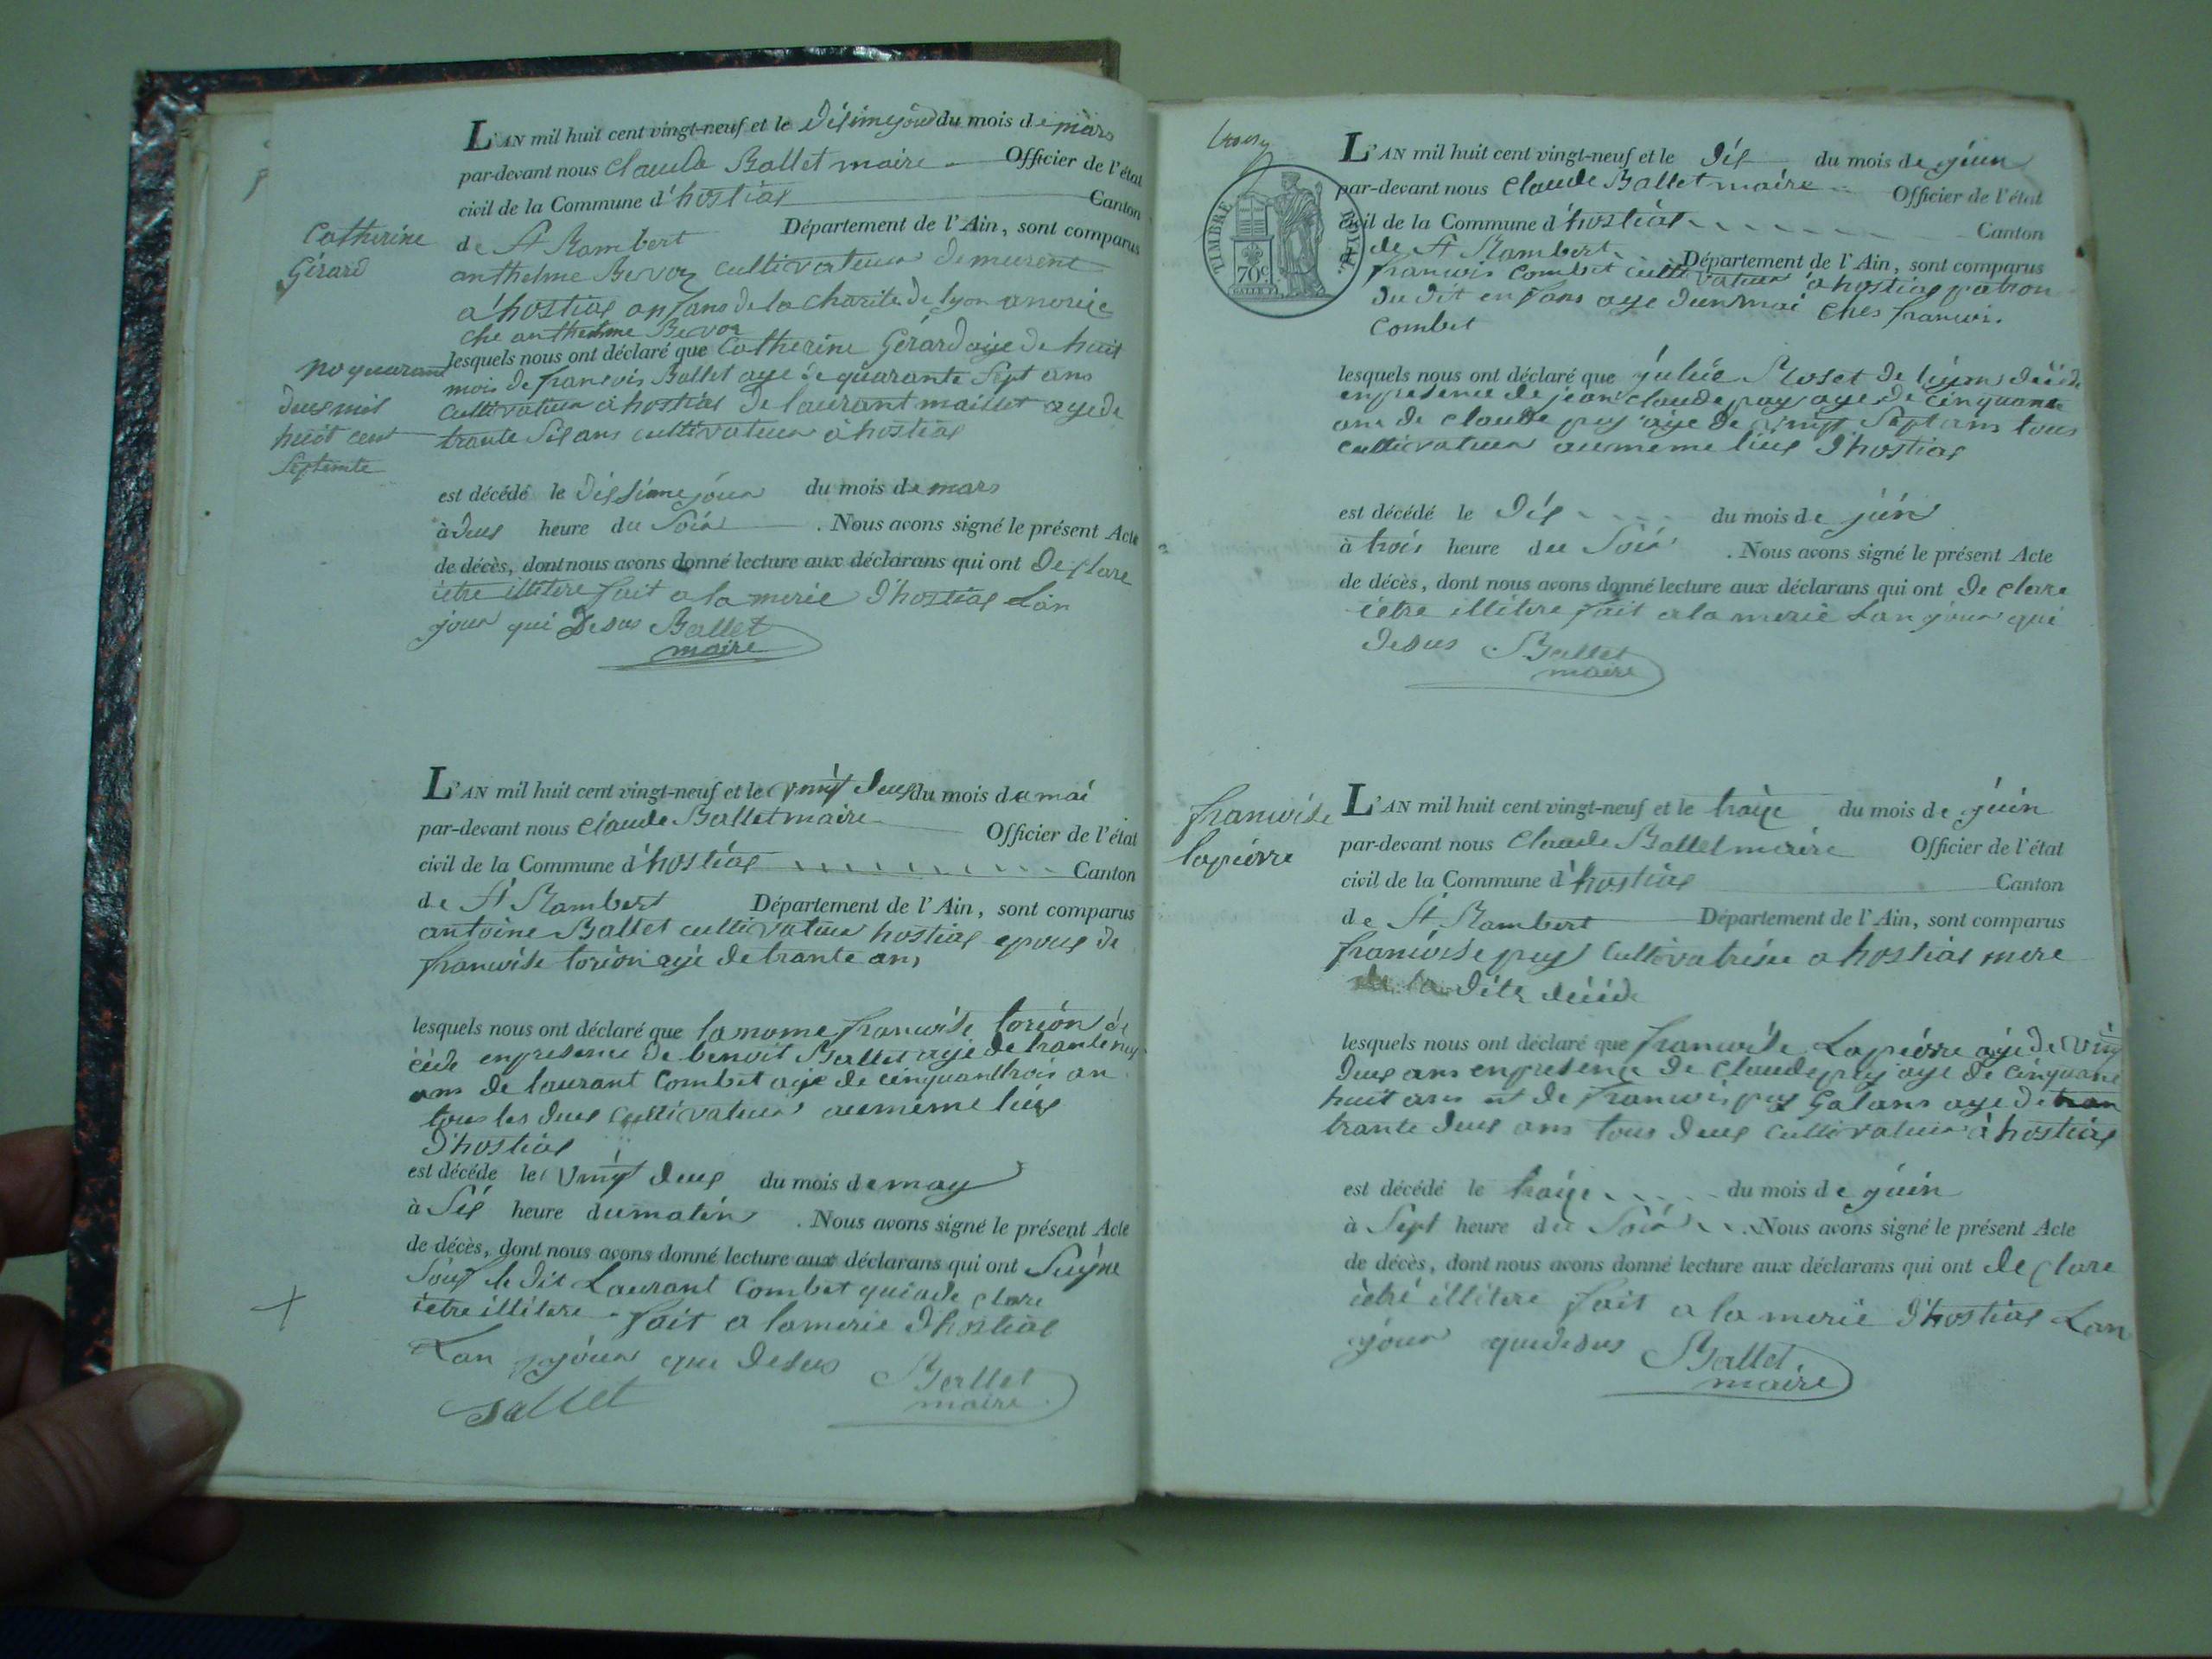 L'AN mil huit cent vingt-neuf et le disimejour du mois de mars
par-devant nous Claude Ballet maire Officier de l'état
civil de la Commune d'hostias Canton
de St Rambert Département de l'Ain, sont comparus
Catherine
Gérard
anthelme Bevoz cultivateur demeurent
a hostias anfans de la charite de lyon
che anthelme Bevoz
lesquels nous ont déclaré que Catherine Gérard age de huit
mois de francois Ballet age de quarante Sept ans
cultivateur a hostias de laurant maillet age de
trante Sis ans cultivateur a hostias
no quarant
deus mil
huit cent
Septente
est décédé le dissime jour du mois de mars
à deus heure du Soir . Nous avons signé le présent Acte
de décès, dont nous avons donné lecture aux déclarans qui ont declare
ietre illitere fait a la merie d'hostias Lan
jour qui desus Ballet
maire
L'AN mil huit cent vingt-neuf et le vint deus du mois de mai
par-devant nous Claude Ballet maire Officier de l'état
civil de la Commune d'hostias Canton
de St Rambert Département de l'Ain, sont comparus
antoine Ballet cultivateur hostias epous de
francoise torion age de trante ans
lesquels nous ont déclaré que la mome francoise torion dé
cede enpresence de benoit Ballet age de trante
ans de laurant Combet age de cinquantrois an
tous les deus cultivateur aumeme lieus
d'hostias
est décédé le vint deus du mois de may
à Sis heure du matin . Nous avons signé le présent Acte
de décès, dont nous avons donné lecture aux déclarans qui ont Suigne
Souf le dit Laurant Combet qui a de clare
ietre illitere fait a lamerie d'hostias
Lan jour que desus Ballet
maire
Ballet
TIMBRE ROYAL
70c
L'AN mil huit cent vingt-neuf et le dis du mois de juin
par-devant nous Claude Ballet maire Officier de l'état
civil de la Commune d'hostias Canton
de St Rambert Département de l'Ain, sont comparus
francois Combet cultivateur a hostias patron
du dit enfans age dun mai ches francois
Combet
lesquels nous ont déclaré que julie Roset de lion décéde
enpresence de jean claude puy age de cinquante
ans de claude puy age de vingt Sept ans tous
cultivateur aumeme lieus d'hostias
est décédé le dis du mois de juin
à trois heure du Soir . Nous avons signé le présent Acte
de décès, dont nous avons donné lecture aux déclarans qui ont de clare
ietre illitere fait a la merie Lan jour que
desus Ballet
maire
francoise
lapierre
L'AN mil huit cent vingt-neuf et le traize du mois de juin
par-devant nous Claude Ballet maire Officier de l'état
civil de la Commune d'hostias Canton
de St Rambert Département de l'Ain, sont comparus
francoise puy cultivatrise a hostias mere
de la dite décéde
lesquels nous ont déclaré que francoise Lapierre age de vint
deus ans enpresence de claude puy age de cinquante
huit ans et de francois puy Galans age de tran
trante deus ans tous deus cultivateur a hostias
est décédé le traize du mois de juin
à Sept heure du Soir . Nous avons signé le présent Acte
de décès, dont nous avons donné lecture aux déclarans qui ont declare
ietre illitere fait a la merie d'hostias Lan
jour quedesus Ballet
maire